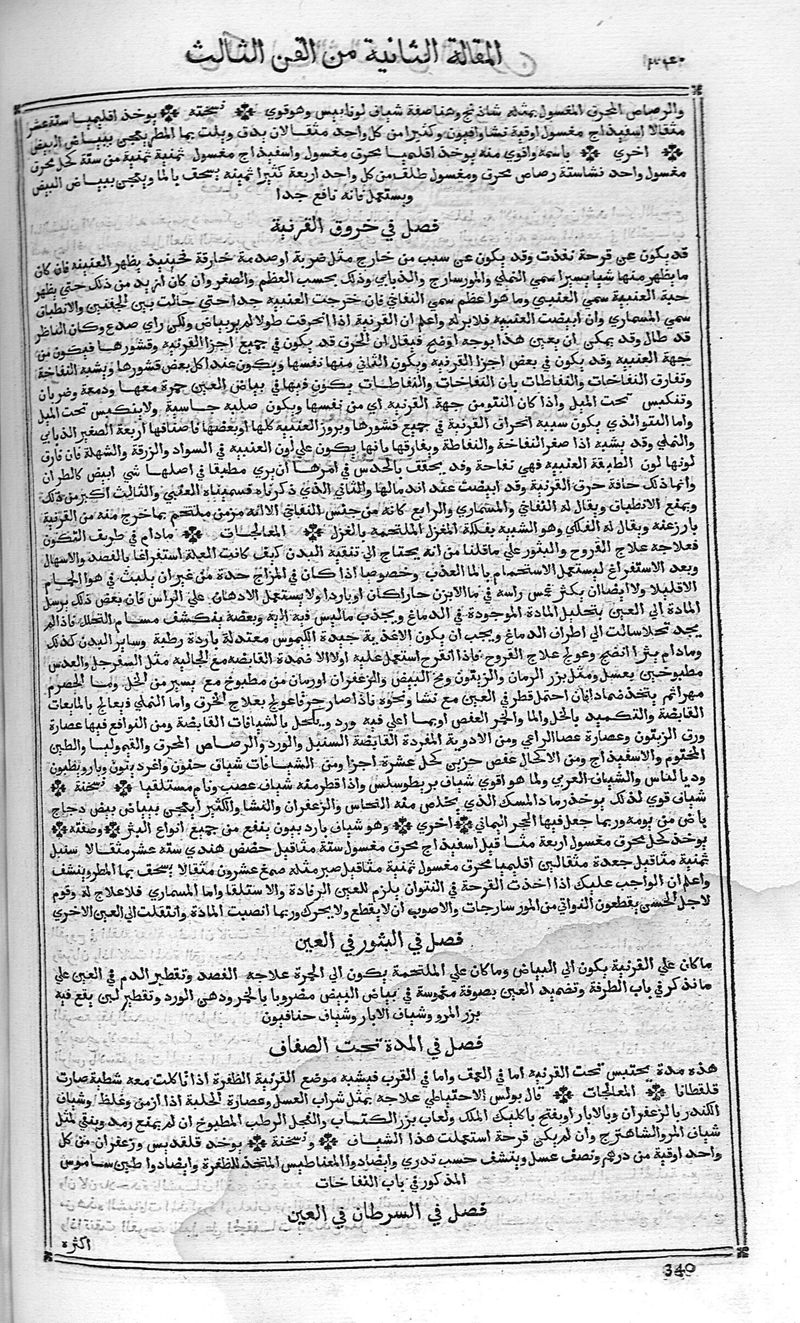 المقالة الثانية من الفن الثالث
والرصاص المحرق المغسول بمثله شاذنج وهنا صفة شياف لونابيس وهو قوي نسخته يوخذ اقليميا ستة عشر
مثقالا اسفيذاج مغسول اوقية نشا وافيون وكثيرا من كل واحد مثقالان يدق ويلت بما المطر يعجن ببياض البيض
اخري باسمه واقوي منه يوخذ اقليميا محرق مغسول واسفيذاج مغسول ثمنية ثمنية من ستة كحل محرق
مغسول واحد نشا ستة رصاص محرق ومغسول طلق من كل واحد اربعة كثيرا ثمنية يسحق بالما ويعجن ببياض البيض
ويستعمل فانه نافع جدا
فصل في خروق القرنية
قد يكون عن قرحة نفذت وقد يكون عن سبب من خارج مثل ضربة او صدمة خارقة فحينيذ يظهر العنبيه فان كان
ما يظهر منها شيا يسيرا سمي النملي والمورسارج والذبابي وذلك بحسب العظم والصغر وان كان ازيد من ذلك حتي يظهر
حبة العنبية سمي العنبي وما هو اعظم سمي النفاخي فان خرجت العنبية جدا حتي حالت بين الجفنين والانطباق
سمي المسماري وان ابيضت العنبيه فلا برء له واعلم ان القرنية اذا انخرقت طولا لم ير بياض ولكن راي صدع وكان الناظر
قد طال وقد يمكن ان يعبر عن هذا بوجه اوضح فيقال ان الخرق قد يكون في جميع اجزا القرنيه وقشورها فيكون من
جهة العنبيه وقد يكون في بعض اجزا القرنيه ويكون الثاني منها نفسها ويكون عند اكل بعض قشورها ويشبه النفاخة
وتفارق النفاخات والنفاطات بان النفاخات والنفاطات يكون فيها في بياض العين حمرة معها ودمعة وضربان
وتنكبس تحت الميل واذا كان النتو من جهة القرنيه اي من نفسها ويكون صلبه جاسية ولا ينكبس تحت الميل
واما النتو الذي يكون سببه انخراق القرنية في جميع قشورها وبروز العنبية كلها او بعضها فاصنافها اربعة الصغير الذبابي
والنملي وقد يشبه اذا صغر النفاخة والنفاطة ويفارقها بانها يكون علي لون العنبيه في السواد والزرقة والشهلة فان فارق
لونها لون الطبقة العنبيه فهي نفاخة وقد يحقق بالحدس في امرها ان يري مطيفا في اصلها شي ابيض كالطران
وانما ذلك حافة خرق القرنية وقد ابيضت عند اندمالها والثاني الذي ذكرناه فسميناه العنبي والثالث اكبر من ذلك
ويمنع الانطباق ويقال له النفاخي والمسماري والرابع كانه من جنس النفاخي الا انه مزمن ملتحم بما خرج منه من القرنية
بارز عنه ويقال له الفلكي وهو الشبيه بفلكة المغزل الملتحمة بالغزل المعالجات ما دام في طريف التكون
فعلاجه علاج القروح والبثور علي ما قلنا من انه يحتاج الي تنقية البدن كيف كانت العلة استفراغا بالفصد والاسهال
وبعد الاستفراغ ليستعمل الاستحمام بالما العذب وخصوصا اذا كان في المزاج حدة من غير ان يلبث في هوا الحمام
الا قليلا ولا ايضا ان يكثر غمس راسه في ما الابزن حارا كان او باردا ولا يستعمل الادهان علي الراس فان بعض ذلك يرسل
المادة الي العين بتحليل المادة الموجودة في الدماغ ويجذب ما ليس فيه اليه وبعضه يكشف مسام التحلل فاذا لم
يجد تحللا سالت الي اطراف الدماغ ويجب ان يكون الاغذية جيدة الكيموس معتدلة باردة رطبة وساير البدن كذلك
وما دام بثرا انضج وعولج علاج القروح فاذا انقرح استعمل عليه اولا الاضمدة القابضه مع الجاليه مثل السفرجل والعدس
مطبوخين بعسل ومثل بزر الرمان والزيتون ومح البيض والزعفران او رمان من مطبوخ مع يسير من الخل وما الحصرم
مهراتم يتخذ ضمادا فان احتمل قطر في العين مع نشا ونحوه فاذا صار خرقا عولج بعلاج الخرق واما النملي فيعالج بالمايعات
القابضة والتكميد بالخل والما والخمر العفص او بما اغلي فيه ورد ويكتحل بالشيافات القابضة ومن النوافع فيها عصارة
ورق الزيتون وعصارة عصا الراعي ومن الادوية المفردة القابضة السنبل والورد والرصاص المحرق والقيموليا والطين
المختوم والاسفيذاج ومن الاكحال عفص جزين كحل عشرة اجزا ومن الشيافات شياف حنون واغرديتون وباروطيون
وديالناس والشياف العربي ولما هو اقوي شياف بريطوسلس واذا قطر منه شياف عصب ونام مستلقيا نسخة
شياف قوي لذلك يوخذ رماد المسك الذي يخلص منه النحاس والزعفران والنشا والكثيرا يعجن ببياض بيض دجاج
باض من يومه وربما جعل فيها الحجر اليماني اخري وهو شياف باردييون ينفع من جميع انواع البثر وصفته
يوخذ كحل محرق مغسول اربعة مثاقيل اسفيذاج محرق مغسول ستة مثاقيل حضض هندي ستة عشر مثقالا سنبل
ثمنية مثاقيل جعدة مثقالين اقليميا محرق مغسول ثمنية مثاقيل صبر مثله صمغ عشرون مثقالا يسحق بما المطر وينشف
واعلم ان الواجب عليك اذا اخذت القرحة في النتو ان يلزم للعين الرفادة والاستلقا واما المسماري فلا علاج له وقوم
لاجل الحسن يقطعون النواتي من المورسارجات والاصوب ان لا يقطع ولا يحرك وربما انصبت المادة وانتقلت الي العين الاخري
فصل في البثور في العين
ما كان علي القرنية يكون الي البياض وما كان علي الملتحمة يكون الي الحمرة علاجه الفصد وتقطير الدم في العين علي
ما نذكر في باب الطرفة وتضميد العين بصوفة مغموسة في بياض البيض مضروبا بالخمر ودهن الورد وتقطير لبن يقع فيه
بزر المرو وشياف الابار وشياف حنافيون
فصل في المدة تحت الصفاق
هذه مدة يحتبس تحت القرنيه اما في العمق واما في القرب فيشبه موضع القرنية الظفرة اذا تاكلت معه شظية صارت
قلقطانا المعالجات قال بولس الاحتياطي علاجه بمثل شراب العسل وعصارة الحلبة اذا ازمن وغلظ وشياف
الكندر بالزعفران وبالابار او يفتح باكليل الملك ولعاب بزر الكتاب والفجل الرطب المطبوخ ان لم يمنع رمد وينقي بمثل
شياف المر والشاهترج وان لم يكن قرحة استعملت هذا الشياف ونسخته يوخذ قلقديس وزعفران من كل
واحد اوقية من درهم ونصف عسل وينشف حسب تدري وايضا دوا المغناطيس المتخذ للظفرة وايضا دوا طين ساموس
المذكور في باب النفاخات
فصل في السرطان في العين
اكثره
340